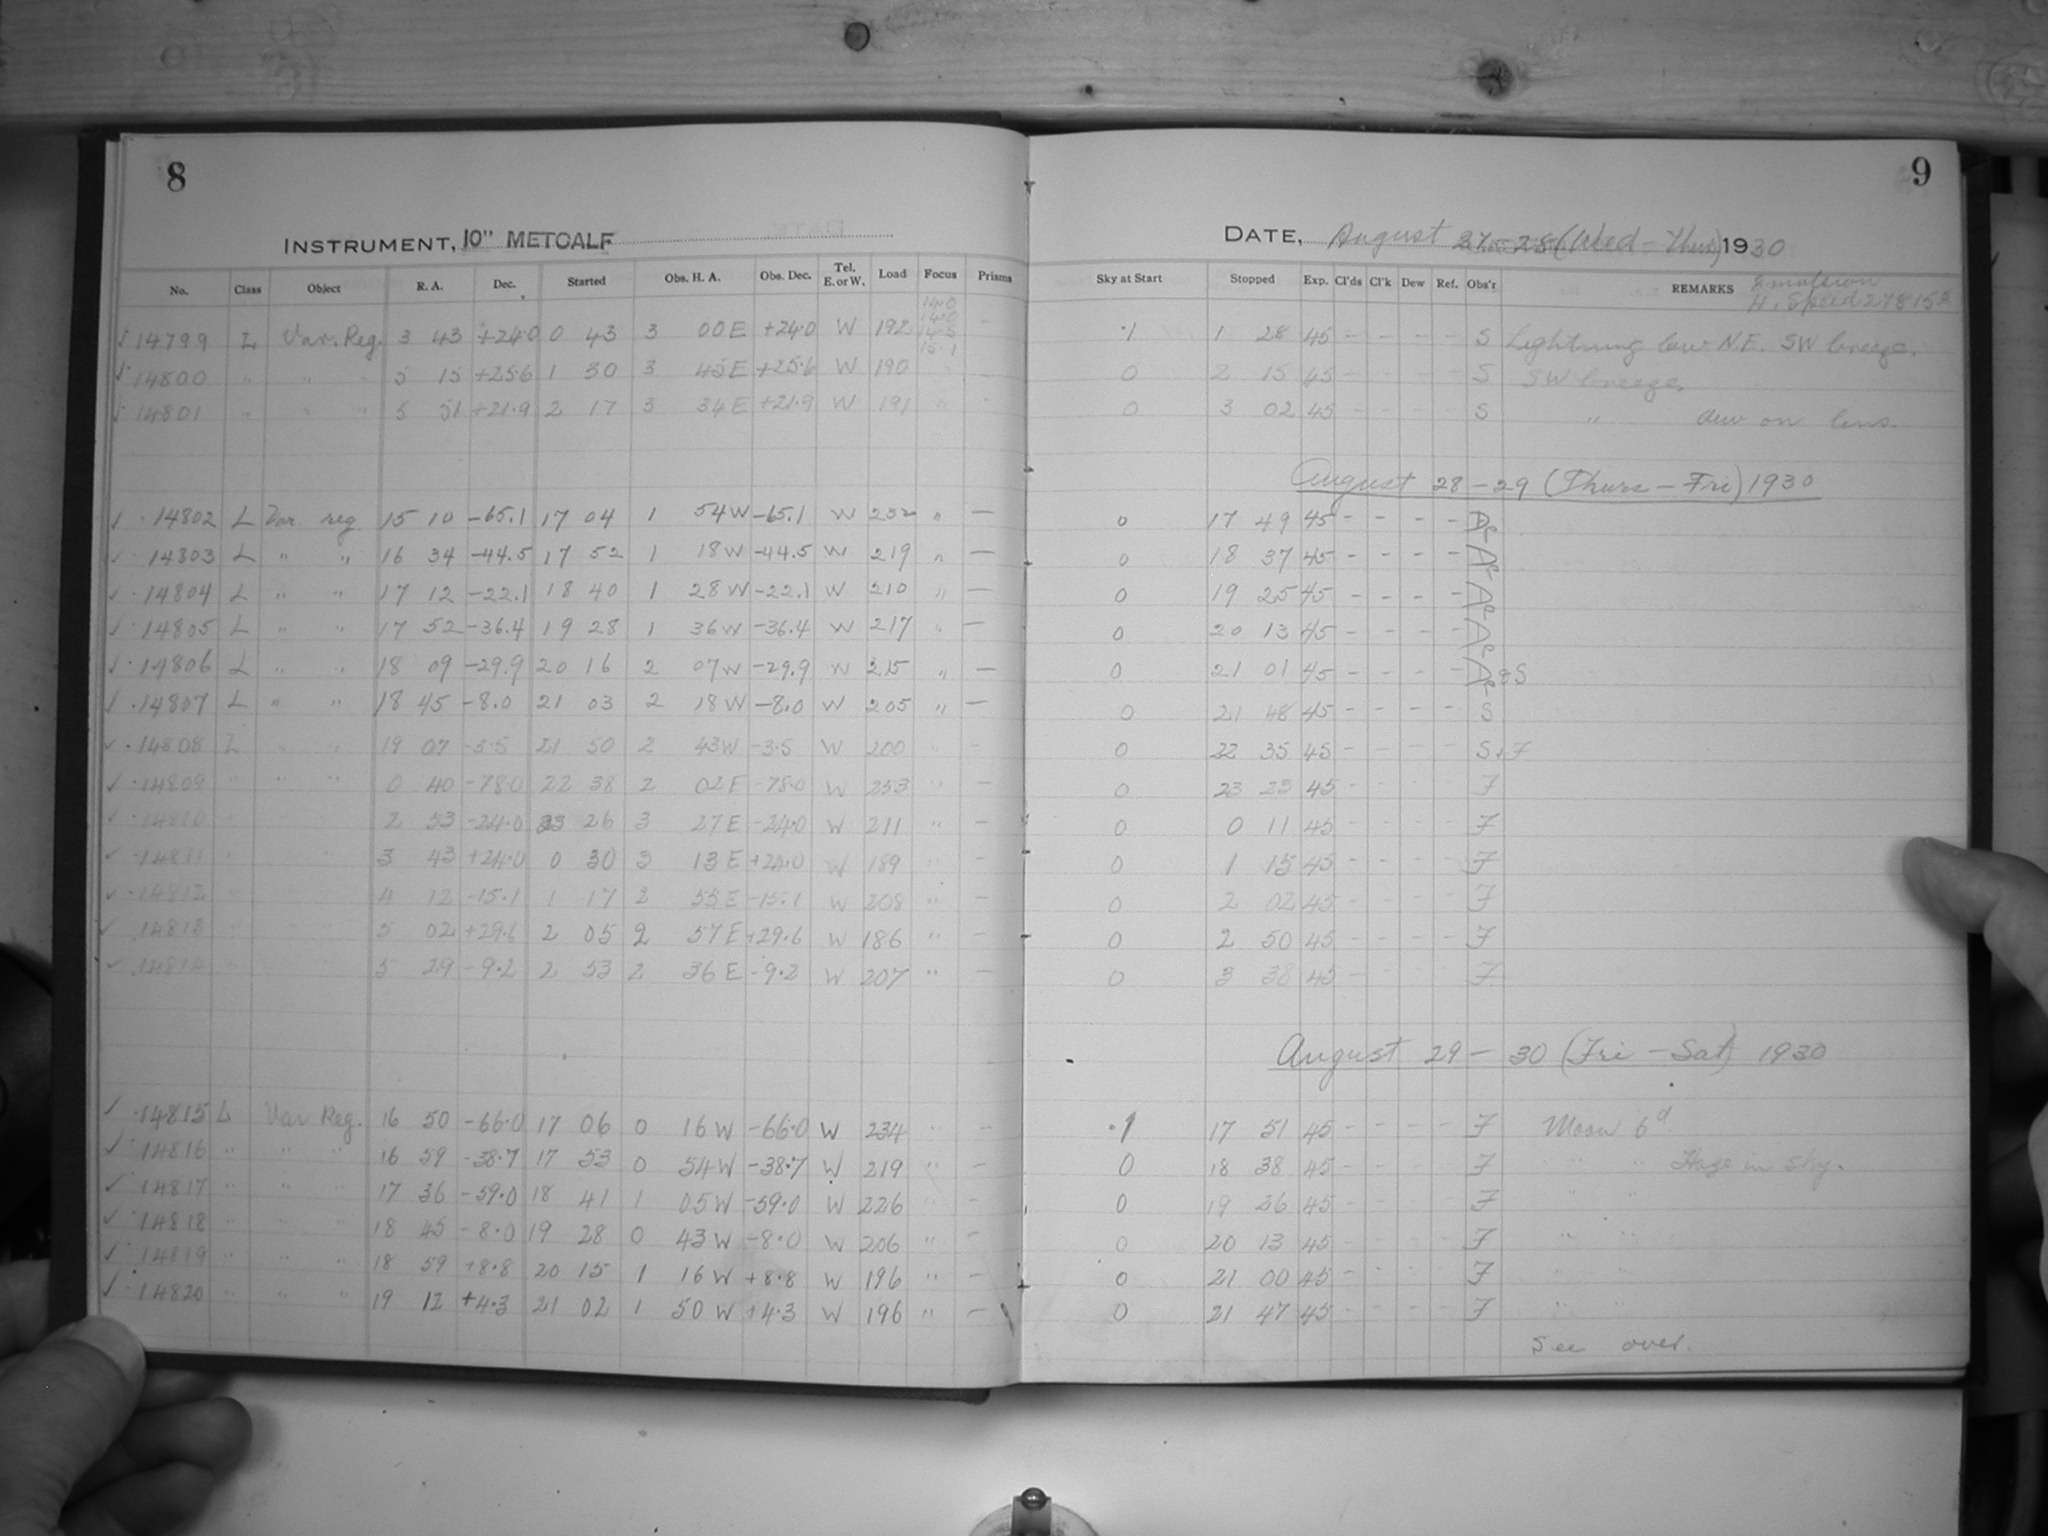 8
INSTRUMENT, 10" METCALF
No. Class Object R. A. Dec. Started Obs. H. A. Obs. Dec. Tel. E. or W. Load Focus Prisms
14.0
14.0
14.5
15.1
14799 L Var. Reg. 3 43 +24.0 0 43 3 00 E +24.0 W 192 -
14800 " " " 5 15 +25.6 1 30 3 45 E +25.6 W 190
14801 " " " 5 51 +21.9 2 17 3 34 E +21.9 W 191 "
14802 L Var. reg 15 10 -65.1 17 04 1 54 W -65.1 W 232 " —
14803 L " " 16 34 -44.5 17 52 1 18 W -44.5 W 219 " —
14804 L " " 17 12 -22.1 18 40 1 28 W -22.1 W 210 " —
14805 L " " 17 52 -36.4 19 28 1 36 W -36.4 W 217 " —
14806 L " " 18 09 -29.9 20 16 2 07 W -29.9 W 215 " —
14807 L " " 18 45 -8.0 21 03 2 18 W -8.0 W 205 " —
14808 L " " 19 07 -3.5 21 50 2 43 W -3.5 W 200 " -
14809 " " " 0 40 -78.0 22 38 2 02 E -78.0 W 253 " -
14810 2 53 -24.0 23 26 3 27 E -24.0 W 211 " -
14811 " 3 43 +24.0 0 30 3 13 E +24.0 W 189 " -
14812 " 4 12 -15.1 1 17 2 55 E -15.1 W 208 " -
14813 " 5 02 +29.6 2 05 2 57 E +29.6 W 186 " -
14814 " 5 29 -9.2 2 53 2 36 E -9.2 W 207 " -
14815 L Var Reg. 16 50 -66.0 17 06 0 16 W -66.0 W 234 " -
14816 " " " 16 59 -38.7 17 53 0 54 W -38.7 W 219 " -
14817 " " " 17 36 -59.0 18 41 1 05 W -59.0 W 226 " -
14818 " " " 18 45 -8.0 19 28 0 43 W -8.0 W 206 " -
14819 " " " 18 59 +8.8 20 15 1 16 W +8.8 W 196 " -
14820 " " " 19 12 +4.3 21 02 1 50 W +4.3 W 196 " -
9
DATE, August 27-28 (Wed-Thurs) 1930
Sky at Start Stopped Exp. Cl'ds Cl'k Dew Ref. Obs'r REMARKS Emulsion
H. Speed 278153
.1 1 28 45 - - - - S Lightning low N.E. SW breeze.
0 2 15 45 - - - - S SW breeze.
0 3 02 45 - - - - S " dew on lens.
August 28-29 (Thurs-Fri) 1930
0 17 49 45 - - - -
0 18 37 45 - - - -
0 19 25 45 - - - -
0 20 13 45 - - - -
0 21 01 45 - - - - & S
0 21 48 45 - - - - S
0 22 35 45 - - - - S + F
0 23 23 45 - - - - F
0 0 11 45 - - - - F
0 1 15 45 - - - - F
0 2 02 45 - - - - F
0 2 50 45 - - - - F
0 3 38 45 - - - - F
August 29-30 (Fri-Sat) 1930
.1 17 51 45 - - - - F Moon 6d.
0 18 38 45 - - - - F " " Haze in sky.
0 19 26 45 - - - - F " "
0 20 13 45 - - - - F " "
0 21 00 45 - - - - F " "
0 21 47 45 - - - - F " "
See over.